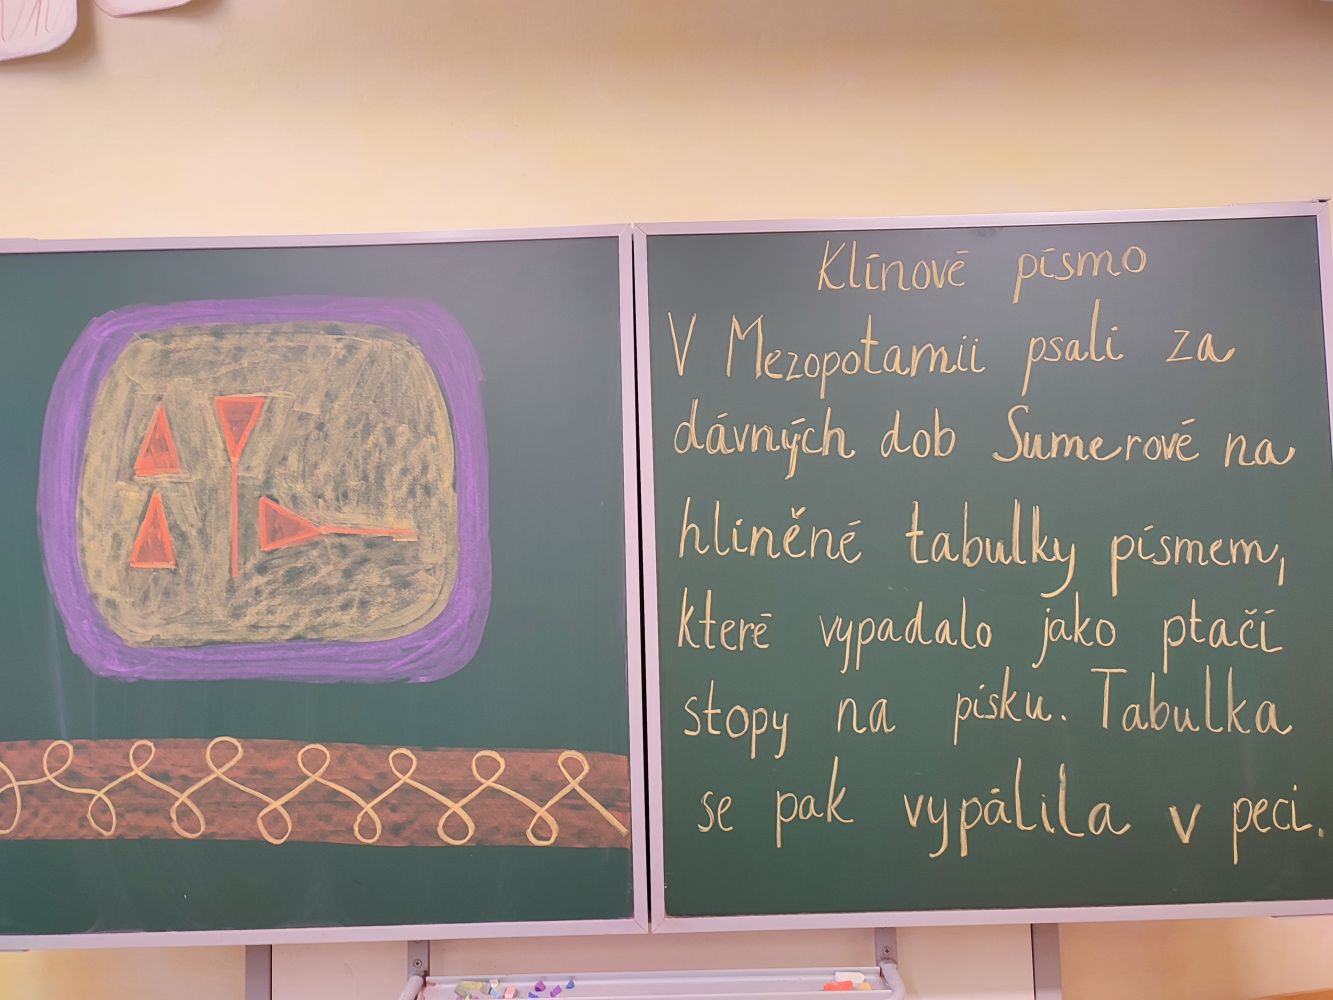 Klínové písmo
V Mezopotamii psali za
dávných dob Sumerové na
hliněné tabulky písmem,
které vypadalo jako ptačí
stopy na písku. Tabulka
se pak vypálila v peci.